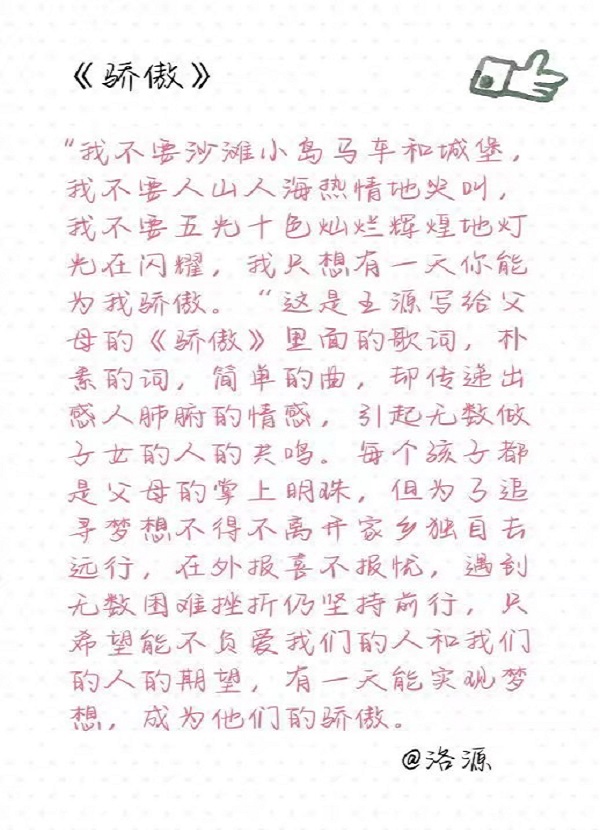 《骄傲》
“我不要沙滩小岛马车和城堡，
我不要人山人海热情地尖叫，
我不要五光十色灿烂辉煌地灯
光在闪耀，我只想有一天你能
为我骄傲。“这是王源写给父
母的《骄傲》里面的歌词，朴
素的词，简单的曲，却传递出
感人肺腑的情感，引起无数做
子女的人的共鸣。每个孩子都
是父母的掌上明珠，但为了追
寻梦想不得不离开家乡独自去
远行，在外报喜不报忧，遇到
无数困难挫折仍坚持前行，只
希望能不负爱我们的人和我们
的人的期望，有一天能实现梦
想，成为他们的骄傲。
@洛源